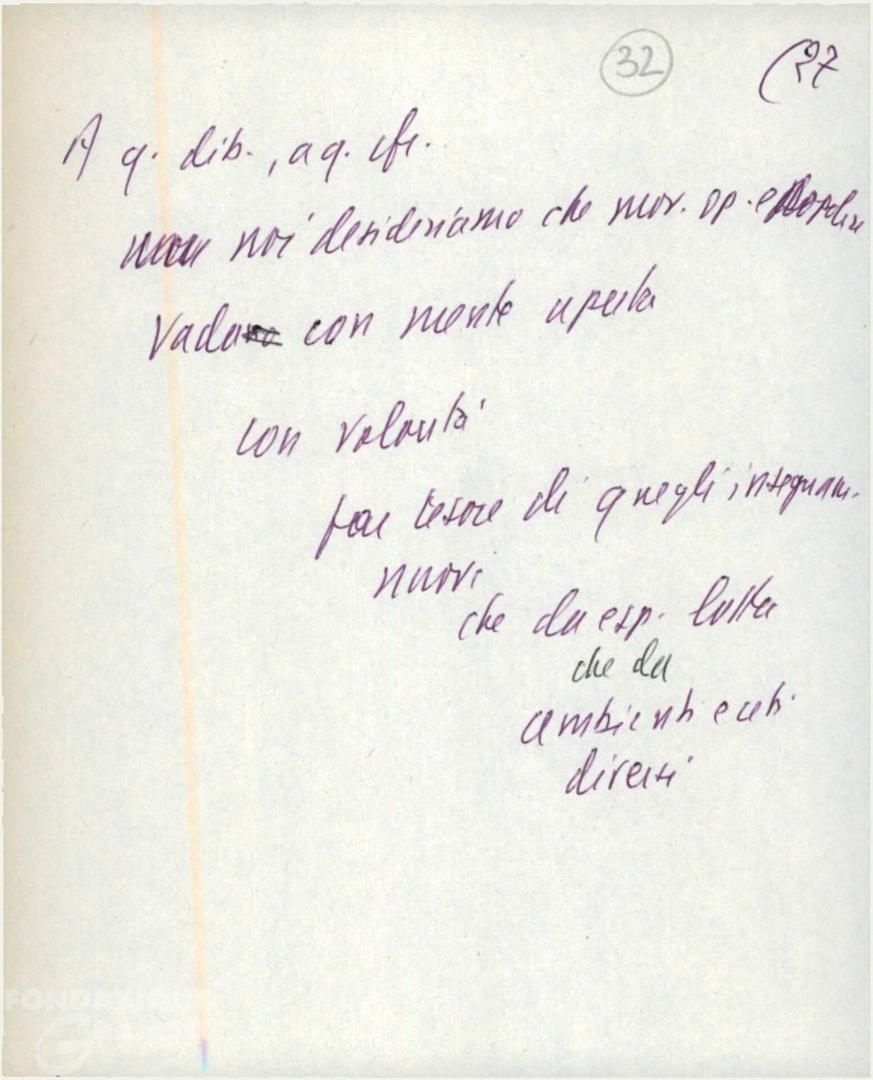 32 (27
A q. dib., a q. cfr.
noi desideriamo che mov. op. e
vada con mente aperta
con volontà
far tesoro di quegli insegnam.
nuovi
che da esp. lotta
che da
ambienti e ceti
diversi
FONDAZIONE